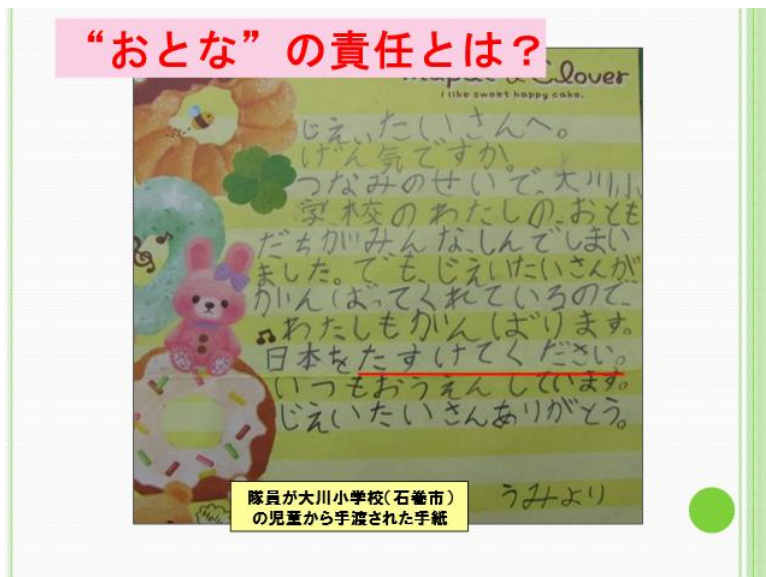 “おとな”の責任とは？
Clover
I like sweet happy cake.
じえいたいさんへ。
げん気ですか。
つなみのせいで、大川小
学校のわたしの、おとも
だちがみんな、しんでしまい
ました。でも、じえいたいさんが
がんばってくれているので、
わたしもがんばります。
日本をたすけてください。
いつもおうえんしています。
じえいたいさんありがとう。
うみより
隊員が大川小学校（石巻市）
の児童から手渡された手紙